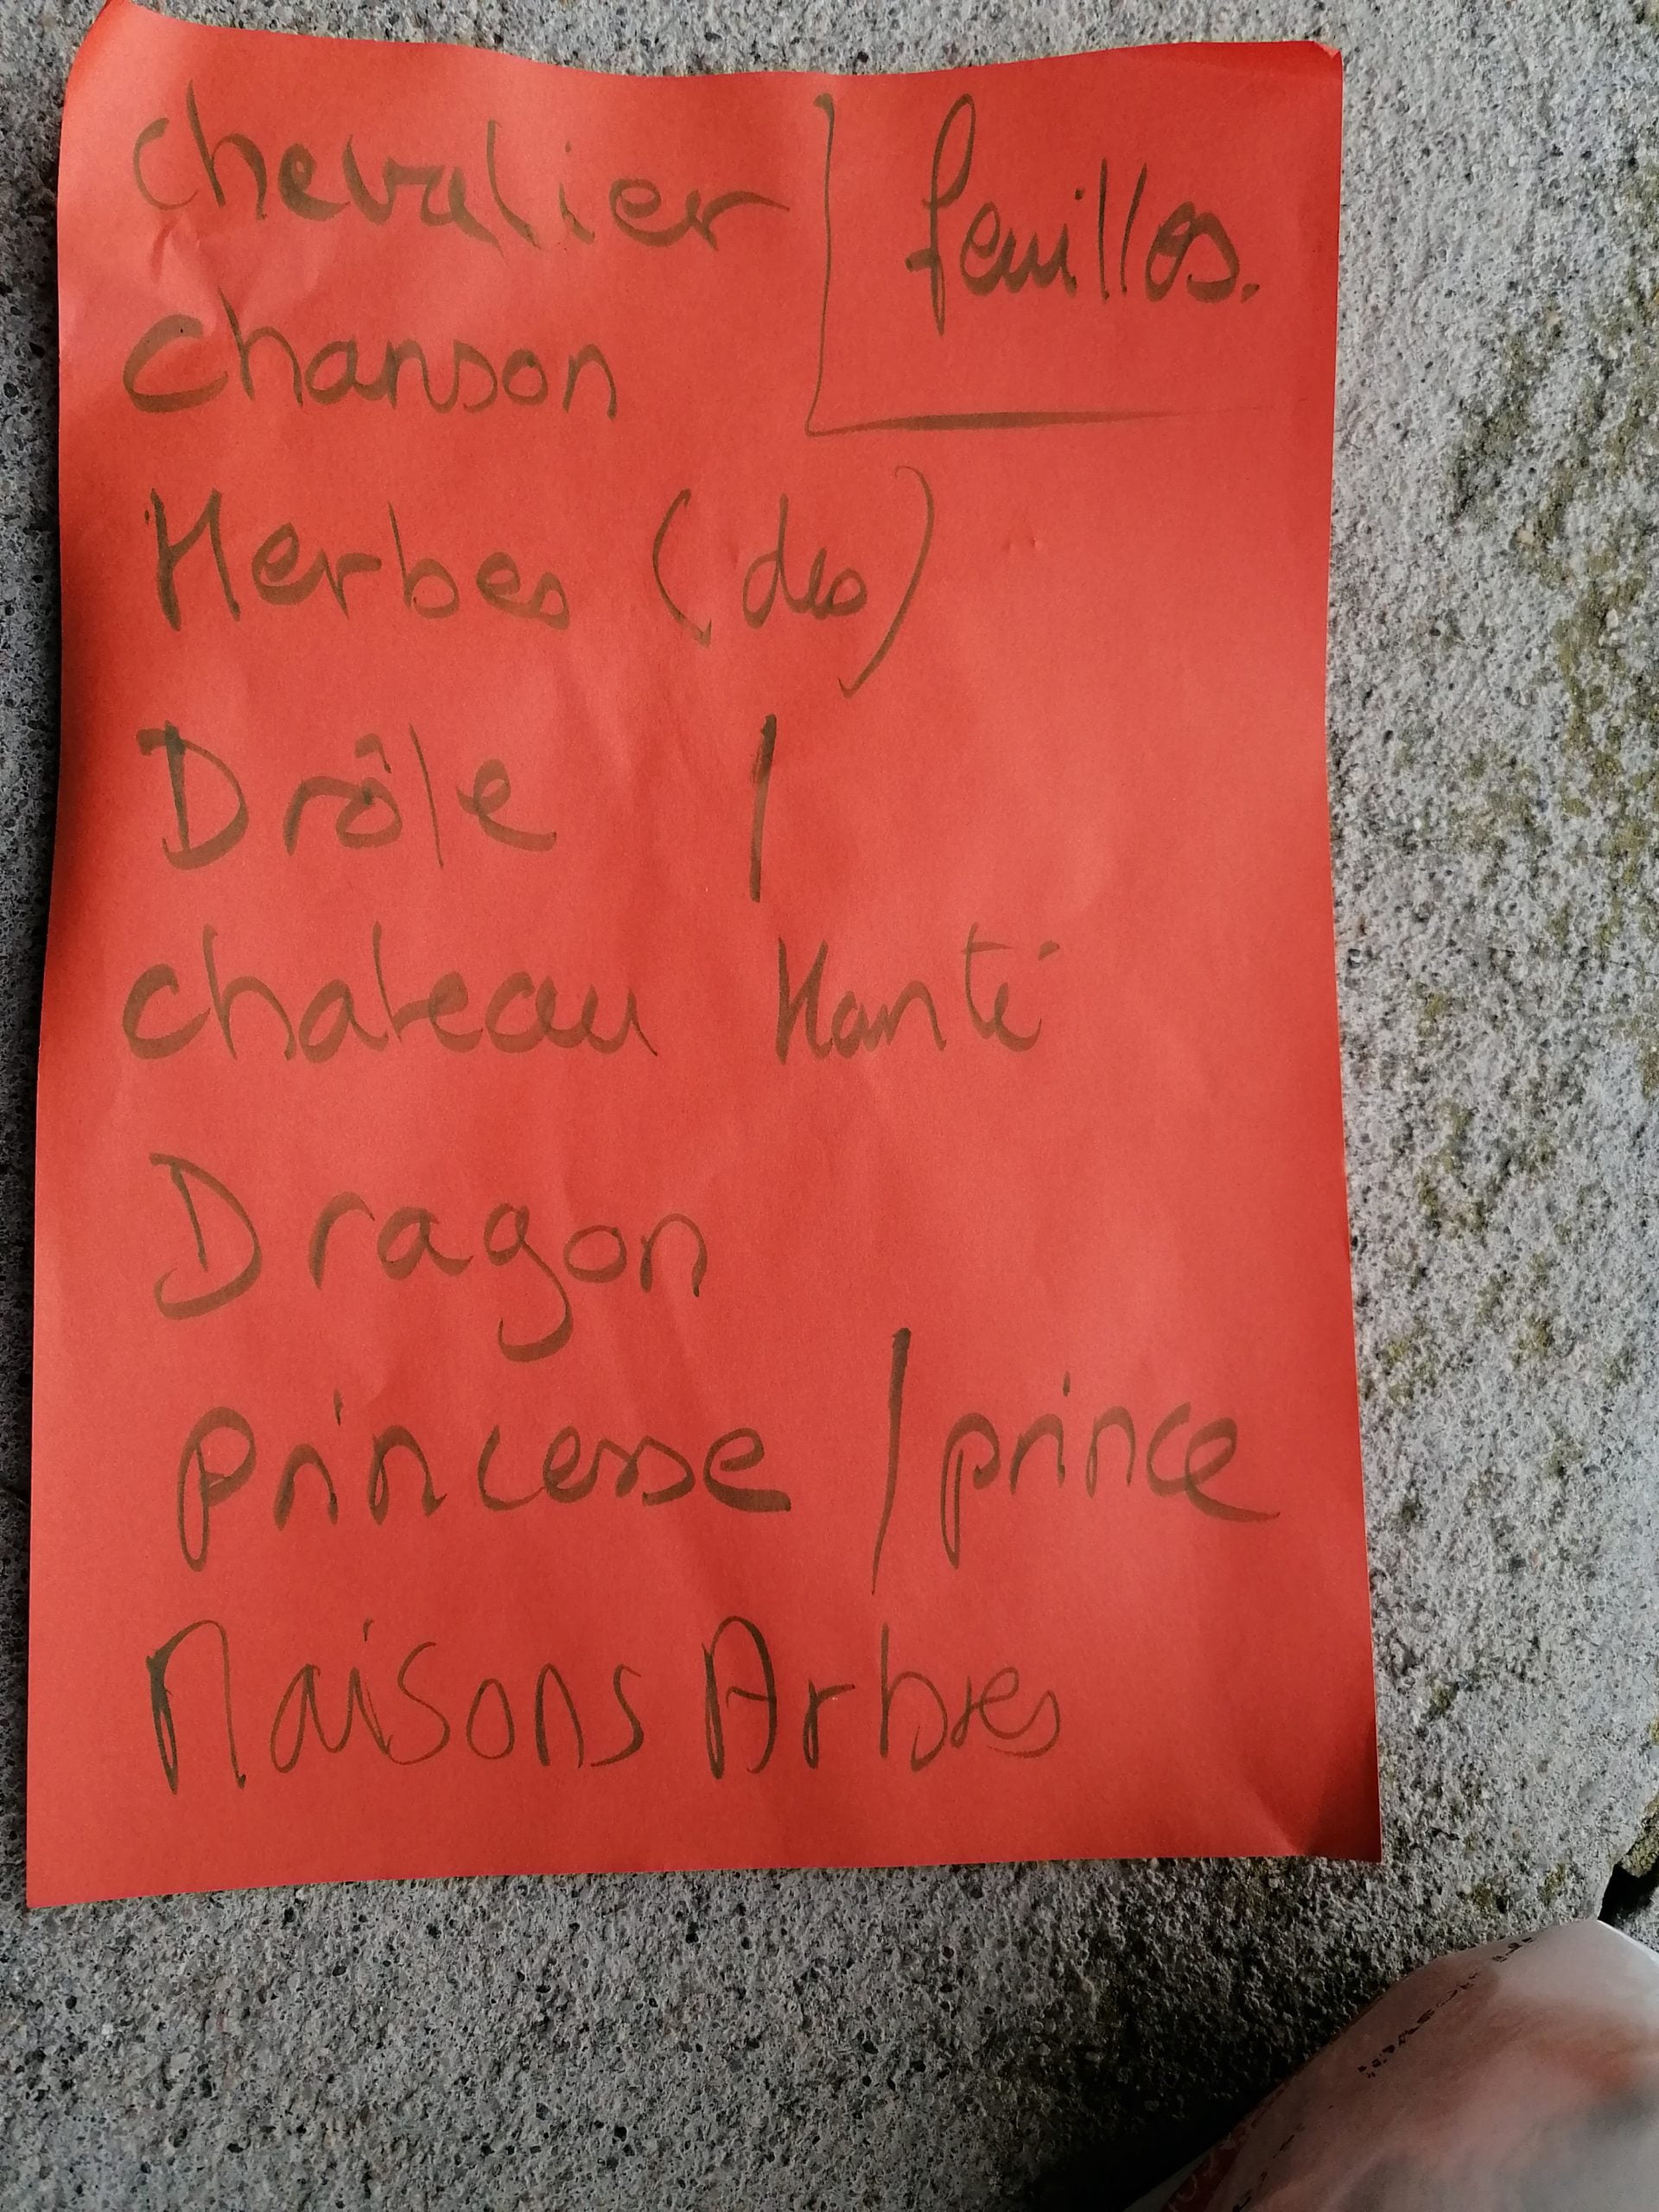 chevalier
feuilles.
chanson
Herbes (des)
Drôle /
chateau Hanté
Dragon
princesse / prince
Maisons Arbres